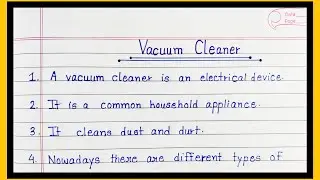 Vacuum Cleaner
1. A vacuum cleaner is an electrical device.
2. It is a common household appliance.
3. It cleans dust and durt.
4. Nowadays there are different types of